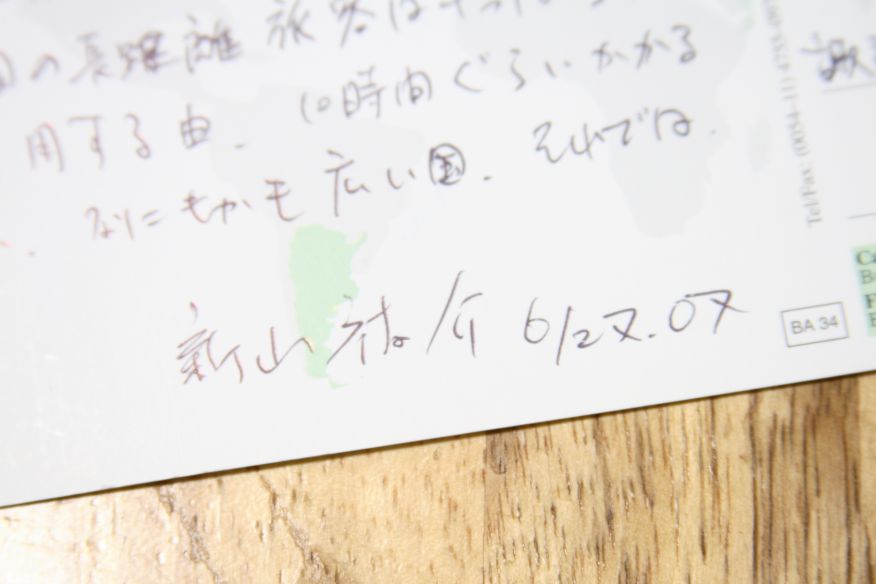 の長距離旅客は
用する由. 10時間ぐらいかかる
. なにもかも広い国. それでは.
新山祐介 6/27.07
Tel/Fax: (0054-11) 4
BA 34